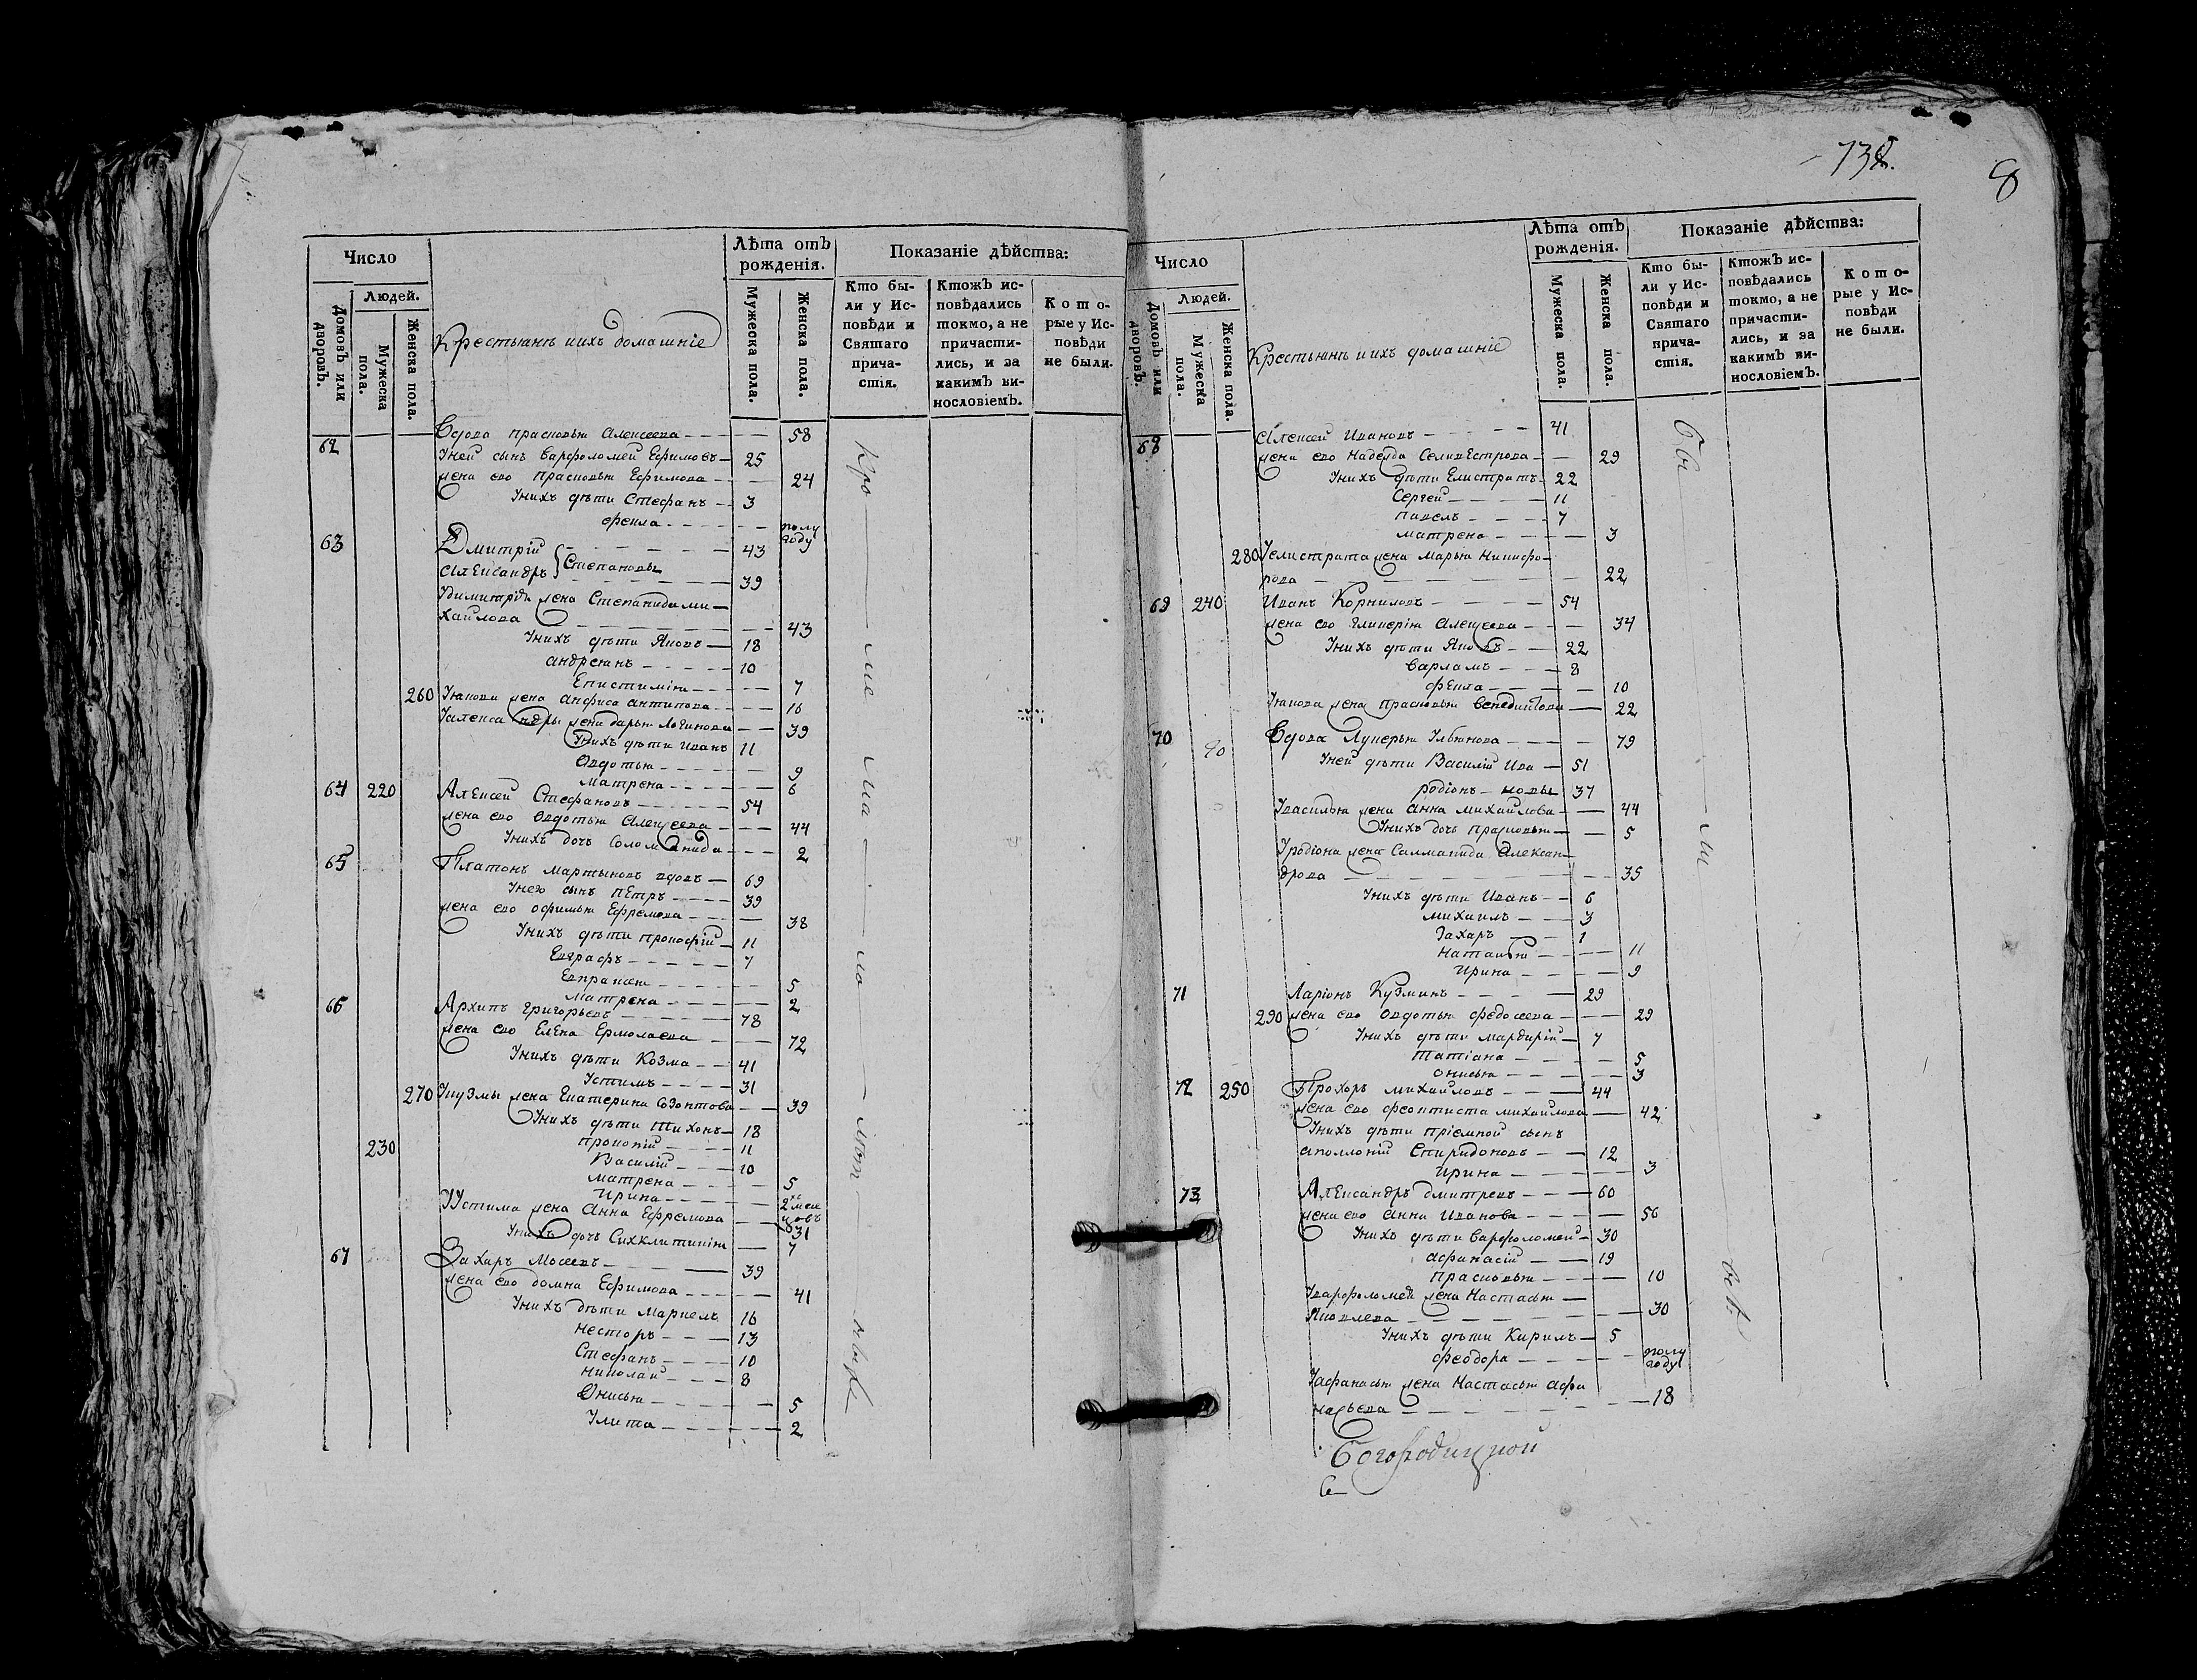 738.
8
Число
Лѣта отъ рожденія.
Показаніе дѣйства:
Домовъ или дворовъ.
Людей.
Мужеска пола.
Женска пола.
Крестьянъ ихъ домашніе
Мужеска пола.
Женска пола.
Кто были у Исповѣди и Святаго причастія.
Ктожъ исповѣдались токмо, а не причастились, и за какимъ винословіемъ.
Которые у Исповѣди не были.
62 Вдова Прасковья Алексеева 58
Уней сынъ Варфоломей Ефимовъ 25
жена ево Прасковья Ефимова 24
Унихъ дѣти Стефанъ 3
Фекла полу году
63 Дмитрій 43
Александръ Степановы 39
Удимитрія жена Степанида Ми
хайлова 43
Унихъ дѣти Яковъ 18
Андреянъ 10
Епистимія 7
260 Уякова жена Анфиса Антипова 16
Уалександры жена Дарья Логинова 39
Унихъ дѣти Иванъ 11
Овдотья 9
Матрена 6
64 220 Алексей Стефановъ 54
жена ево Овдотья Алексеева 44
Унихъ дочь Соломанида 2
65 Платонъ Мартыновъ вдовъ 69
Унего сынъ Петръ 39
жена ево Офимья Ефремова 38
Унихъ дѣти Прокофій 11
Евграфъ 7
Евпраксея 5
Матрена 2
66 Архипъ Григорьевъ 78
жена ево Елена Ермолаева 72
Унихъ дѣти Козма 41
Устимъ 31
270 Укузмы жена Екатерина Созонтова 39
Унихъ дѣти Тихонъ 18
230 Прокопій 11
Василій 10
Матрена 5
Ирина 2хъ месецовъ
Уустима жена Анна Ефремова 31
Унихъ дочь Сихклитикія 7
67 Захаръ Мосеевъ 39
жена ево Домна Ефимова 41
Унихъ дѣти Маркелъ 16
Несторъ 13
Стефанъ 10
Николай 8
Онисья 5
Улита 2
Кро ме ма ло лѣт ныхъ
Число
Лѣта отъ рожденія.
Показаніе дѣйства:
Домовъ или дворовъ.
Людей.
Мужеска пола.
Женска пола.
Крестьянъ ихъ домашніе
Мужеска пола.
Женска пола.
Кто были у Исповѣди и Святаго причастія.
Ктожъ исповѣдались токмо, а не причастились, и за какимъ винословіемъ.
Которые у Исповѣди не были.
68 Алексей Ивановъ 41
жена ево Надежда Селивестрова 29
Унихъ дѣти Елистратъ 22
Сергей 11
Павелъ 7
Матрена 3
280 Уелистрата жена Марья Никифо
рова 22
69 240 Иванъ Корниловъ 54
жена ево Гликерія Алексеева 34
Унихъ дѣти Яковъ 22
Варламъ 8
Фекла 10
Уякова жена Прасковья Венедиктова 22
70 Вдова Лукерья Ульянова 79
Уней дѣти Василій Ива 51
Родіонъ новы 37
Увасилья жена Анна Михайлова 44
Унихъ дочь Прасковья 5
Уродіона жена Салманида Алексан
дрова 35
Унихъ дѣти Иванъ 6
Михаилъ 3
Захаръ 1
Наталья 11
Ирина 9
71 Ларіонъ Кузминъ 29
290 жена ево Овдотья Федосеева 29
Унихъ дѣти Мардирій 7
Татіана 5
Онисья 3
72 250 Прохоръ Михайловъ 44
жена ево Феоктиста Михайлова 42
Унихъ дѣти пріемной сынъ
Аполлоній Спиридоновъ 12
Ирина 3
73 Александръ Дмитревъ 60
жена ево Анна Иванова 56
Унихъ дѣти Варфоломей 30
Афанасій 19
Прасковья 10
Уварфоломея жена Настасья
Яковлева 30
Унихъ дѣти Кирилъ 5
Феодора полу году
Уафанасья жена Настасья Афа
насьева 18
Бы ли всѣ
Богородицкой